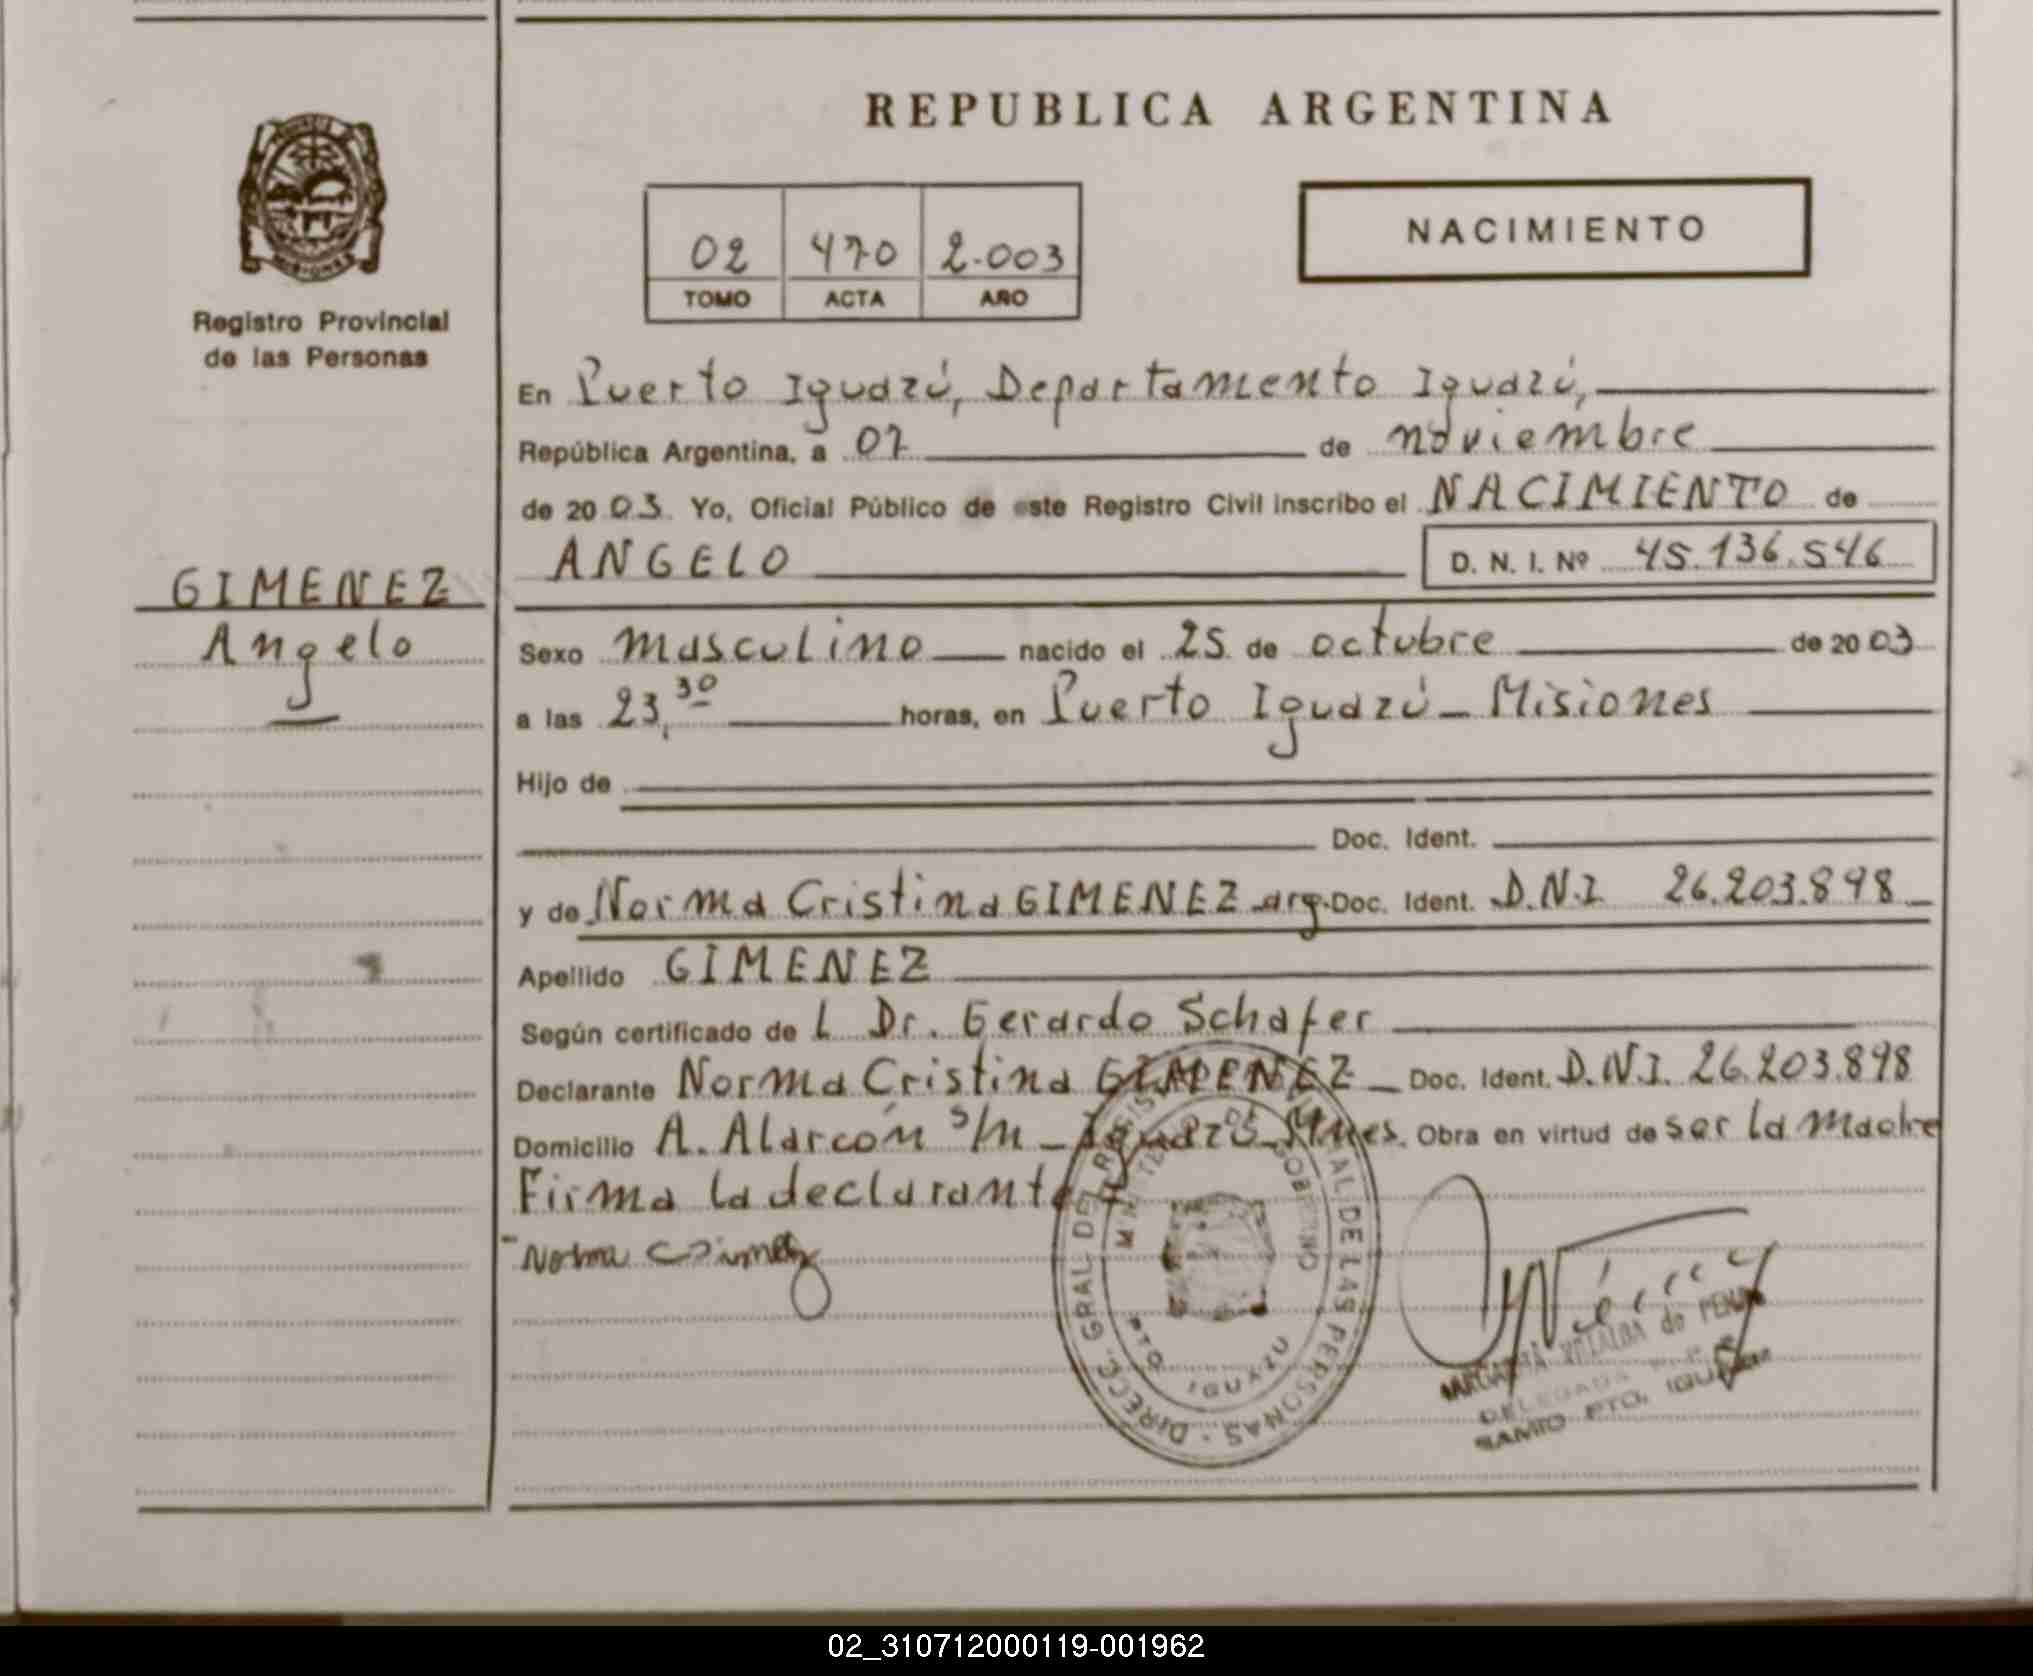 REPUBLICA ARGENTINA
NACIMIENTO
02 470 2.003
TOMO ACTA AÑO
MISIONES
Registro Provincial
de las Personas
En Puerto Iguazú, Departamento Iguazú,
República Argentina, a 07 de noviembre
de 2003. Yo, Oficial Público de este Registro Civil inscribo el NACIMIENTO de
ANGELO D. N. I. Nº 45.136.546
GIMENEZ
Angelo
Sexo masculino nacido el 25 de octubre de 2003
a las 23,30 horas, en Puerto Iguazú - Misiones
Hijo de
Doc. Ident.
y de Norma Cristina GIMENEZ arg. Doc. Ident. D.N.I 26.203.898
Apellido GIMENEZ
Según certificado de L Dr. Gerardo Schafer
Declarante Norma Cristina GIMENEZ Doc. Ident. D.N.I. 26.203.898
Domicilio A. Alarcón s/n - Iguazú - Mnes. Obra en virtud de ser la madre
Firma la declarante
Norma
DIRECC. GRAL DEL REGISTRO DE LAS PERSONAS
MINISTERIO DE GOBIERNO
PTO. IGUAZU
MARGARITA de
DELEGADA
PTO. IGUAZU
02_310712000119-001962